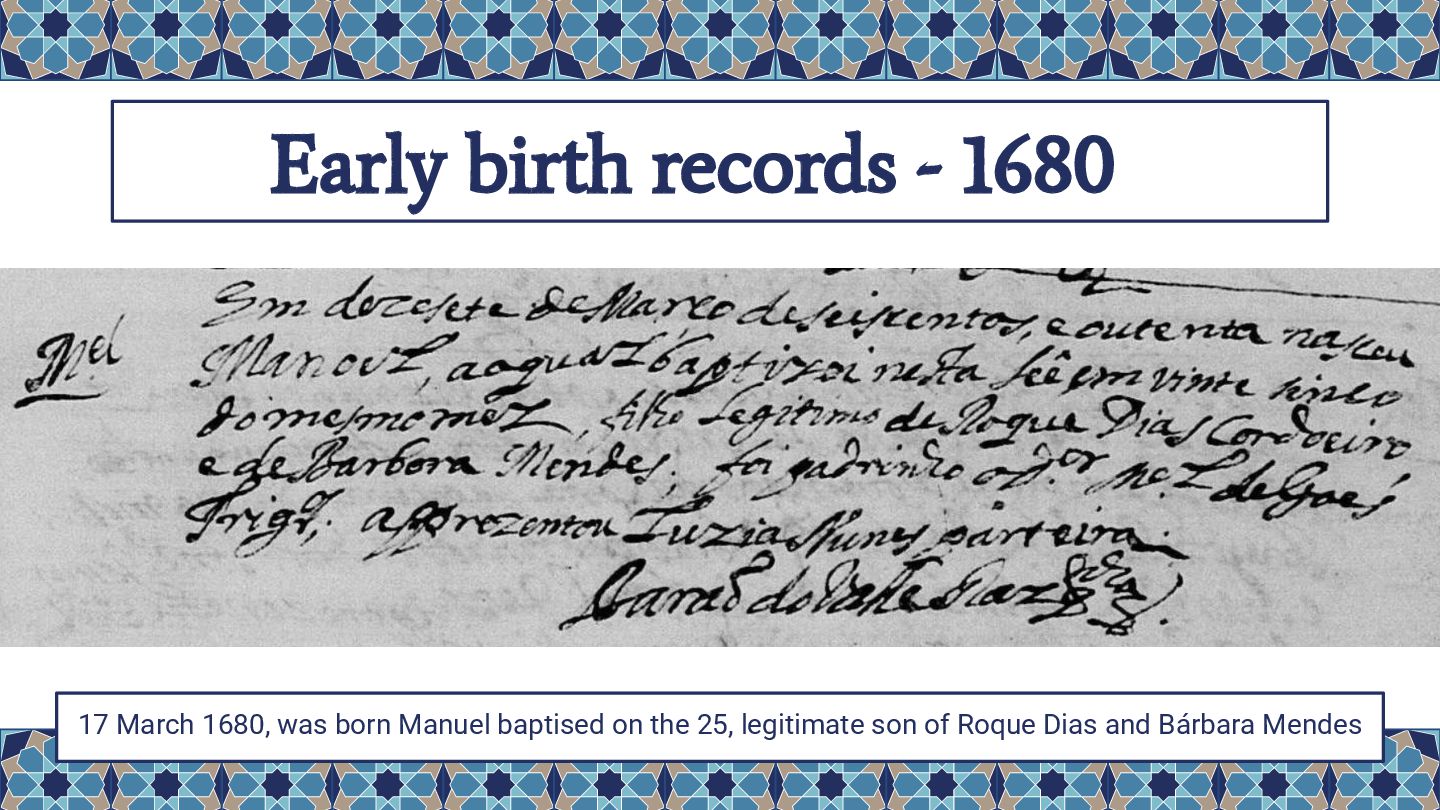 Early birth records - 1680
Em dezesete de Março de seiscentos, e outenta nasceu
Mel
Manoel, ao qual baptizei nesta Seê em vinte sinco
do mesmo mez, filho legitimo de Roque Dias Cordoeiro
e de Barbora Mendes; foi padrinho o de Goes
aprezentou Luzia Nunes parteira.
do Valle Vaz
17 March 1680, was born Manuel baptised on the 25, legitimate son of Roque Dias and Bárbara Mendes